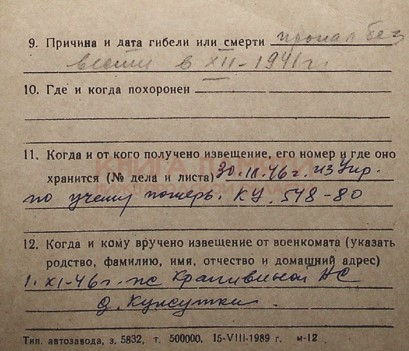 9. Причина и дата гибели или смерти пропал без
вести в XII-1941 г.
10. Где и когда похоронен
11. Когда и от кого получено извещение, его номер и где оно
хранится (№ дела и листа) 30.IX.46г. из Упр.
по учету потерь. КУ. 548-80
12. Когда и кому вручено извещение от военкомата (указать
родство, фамилию, имя, отчество и домашний адрес)
1.XI-46г. Крапивиной НС
д.
Тип. автозавода, з. 5832, т. 500000, 15-VIII-1989 г. м-12